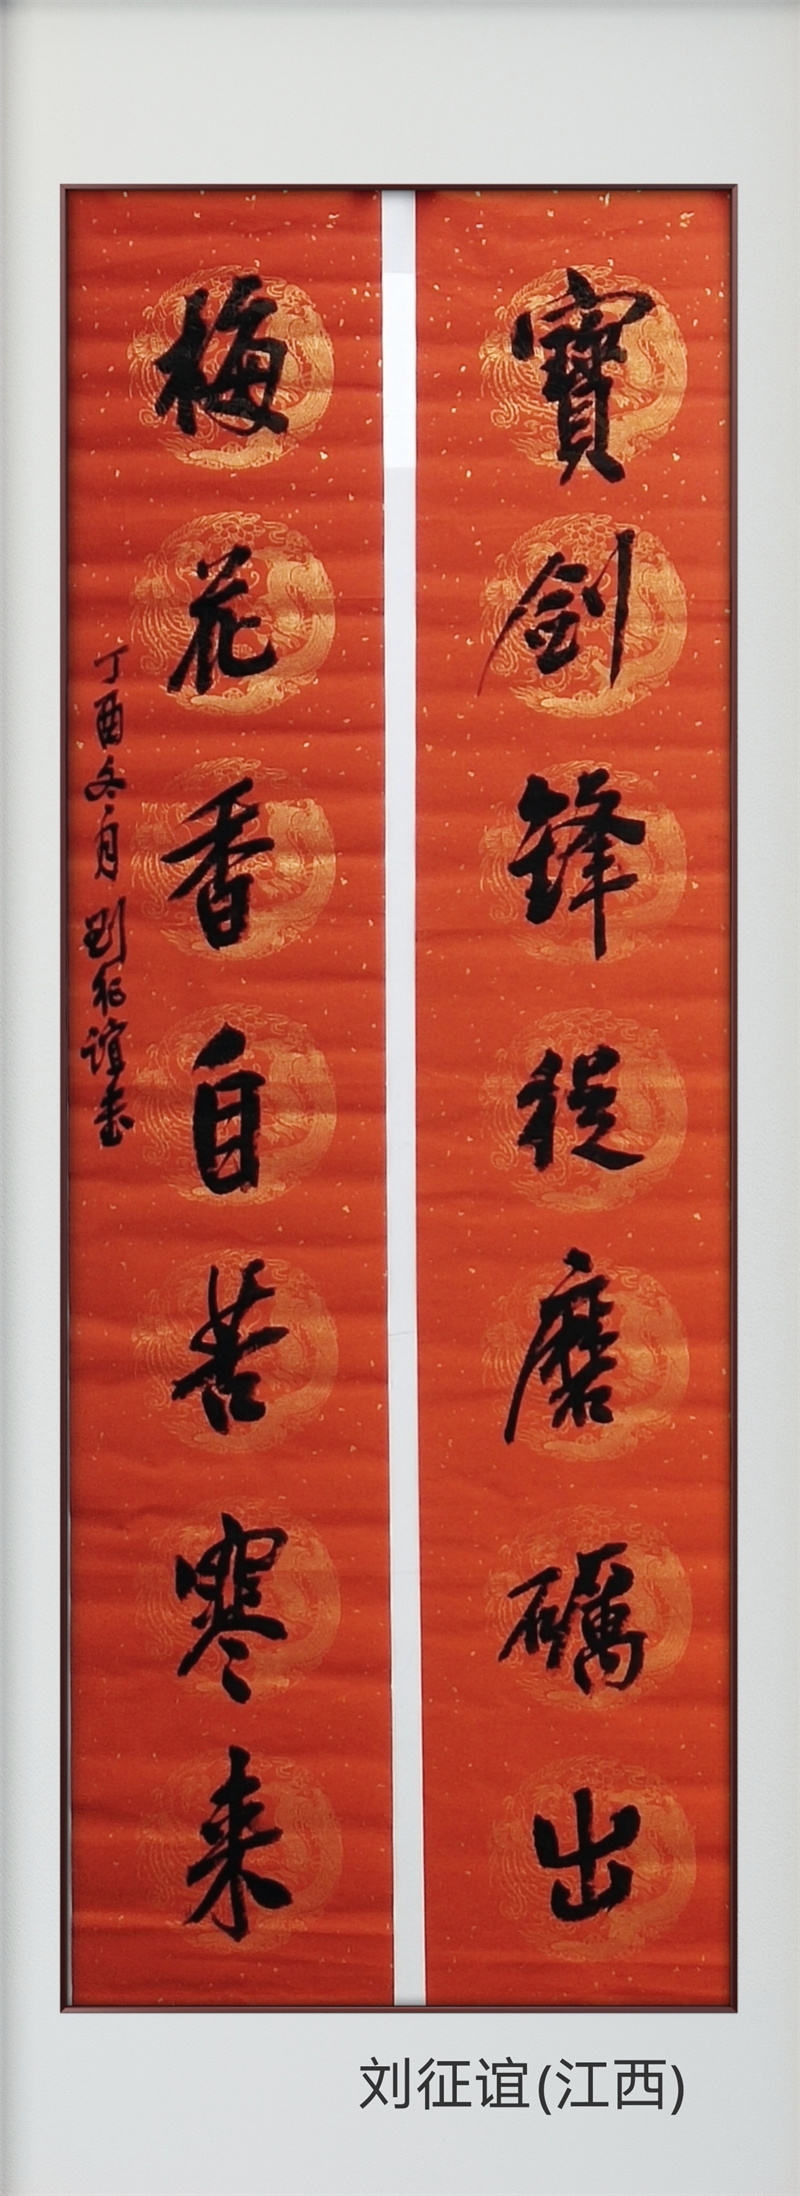 寶劍鋒從磨礪出
梅花香自苦寒来
丁酉冬月劉征誼書
刘征谊(江西)